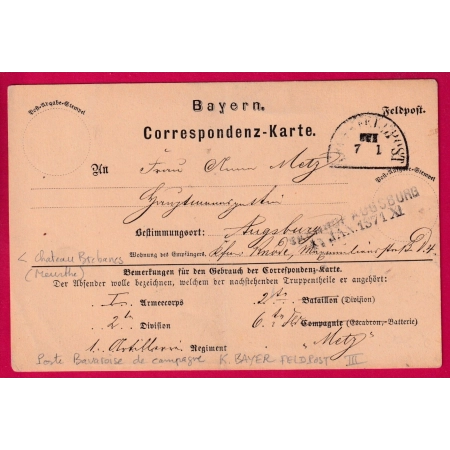 Post-Abgabe-Stempel
Bayern.
Feldpost.
Correspondenz-Karte.
7 1
An Frau Anna Metz
Post-Abgabe-Stempel
Hauptmannsgattin
Bestimmungsort: Augsburg
AUGSBURG
JAN. 1871 XI
Wohnung des Empfängers. Maximilianstr. D. 4
< Chateau Brehanes
(Meurthe)
Bemerkungen für den Gebrauch der Correspondenz-Karte.
Der Absender wolle bezeichnen, welchem der nachstehenden Truppentheile er angehört:
I. Armeecorps 2. Bataillon (Division)
2te Division 6. Compagnie (Escadron,-Batterie)
1. Artillerie Regiment "Metz"
Poste Bavaroise de campagne K. BAYER FELDPOST III